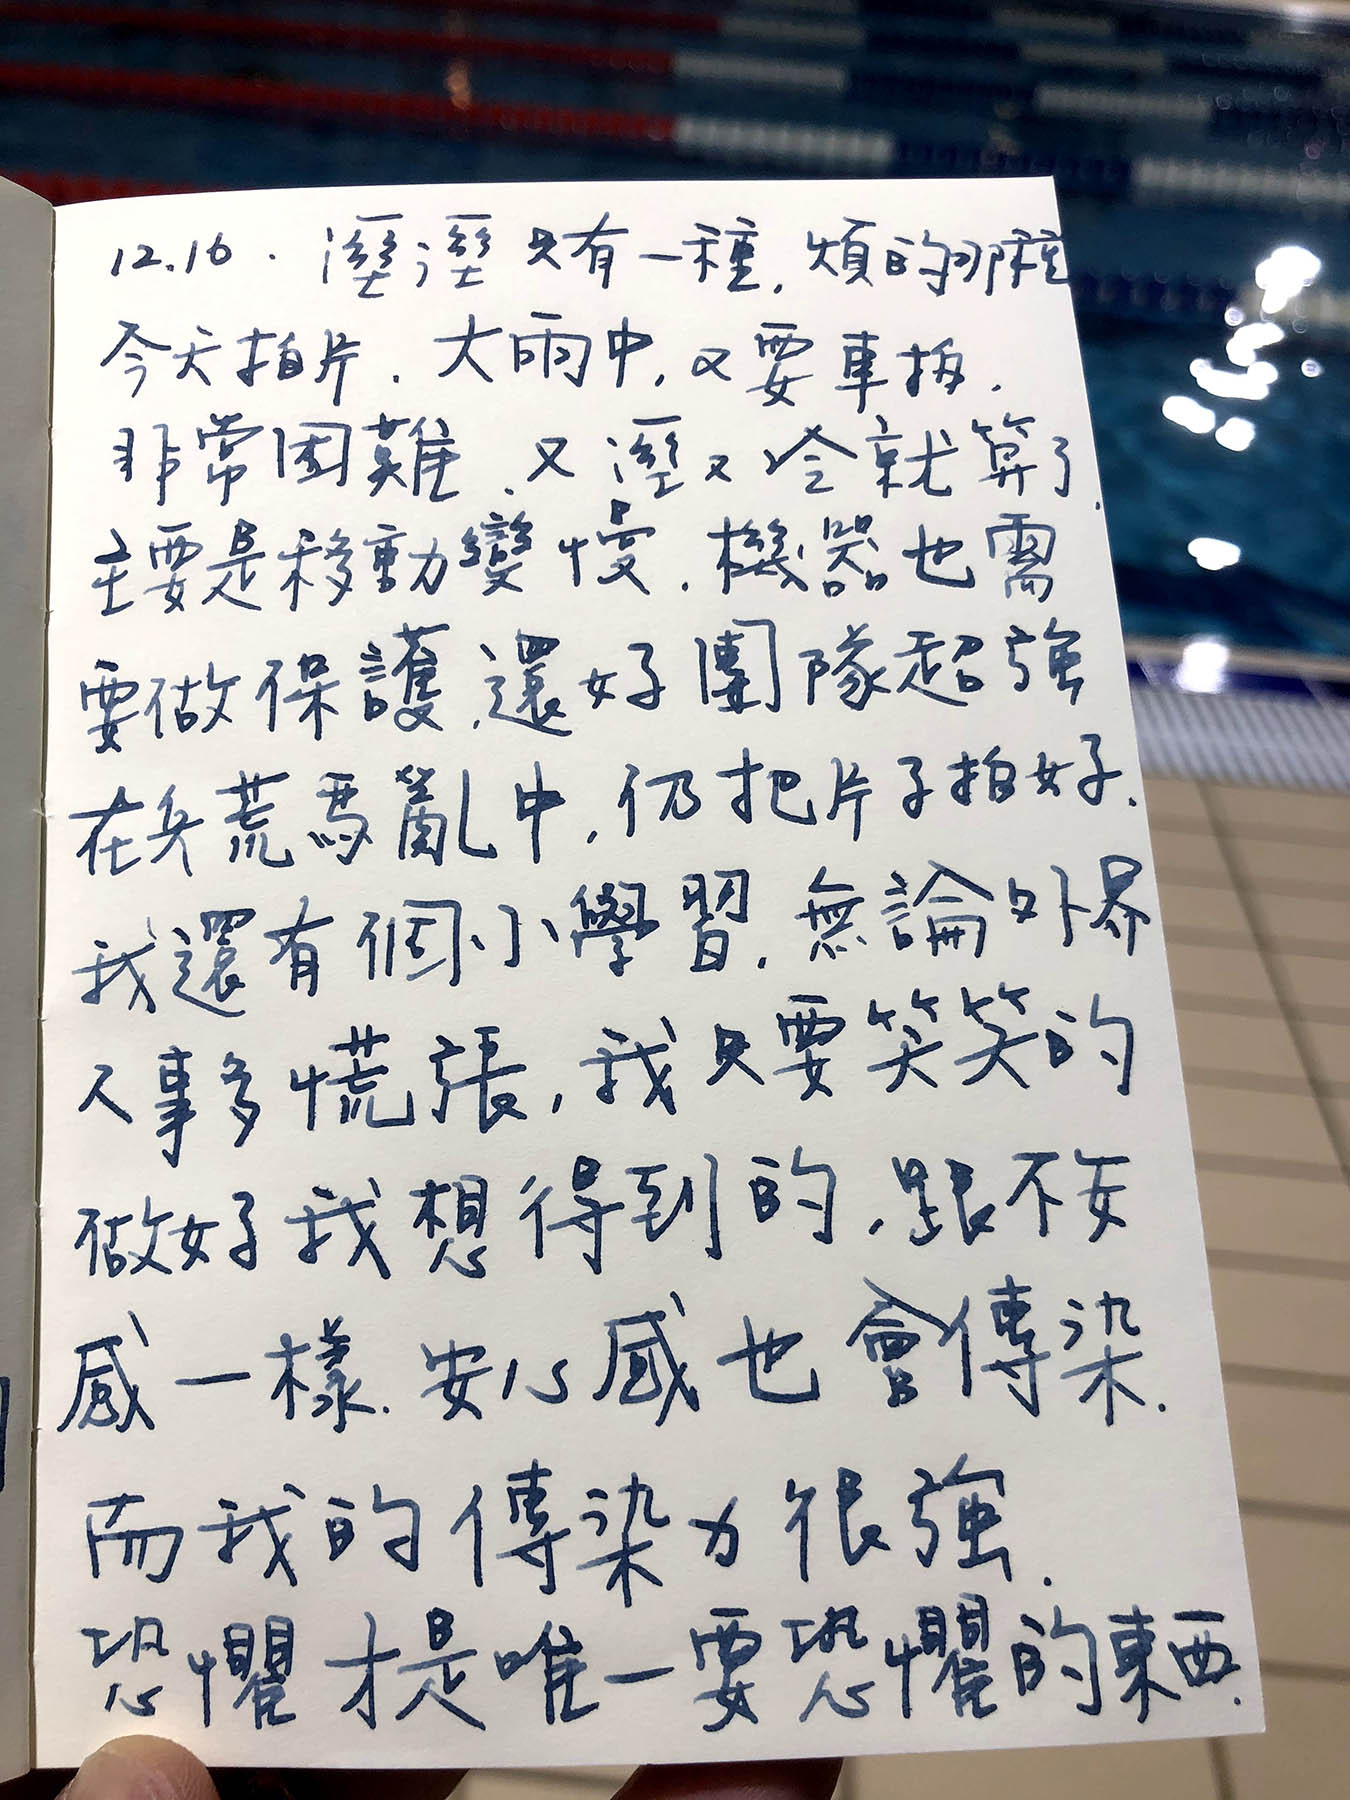 12.16. 溼溼只有一種,煩的那種
今天拍片.大雨中,又要車拍.
非常困難.又溼又冷就算了.
主要是移動變慢.機器也需
要做保護.還好團隊超強
在兵荒馬亂中,仍把片子拍好.
我還有個小小學習.無論外界
人事多慌張,我只要笑笑的
做好我想得到的.跟不安
感一樣.安心感也會傳染.
而我的傳染力很強.
恐懼才是唯一要恐懼的東西.